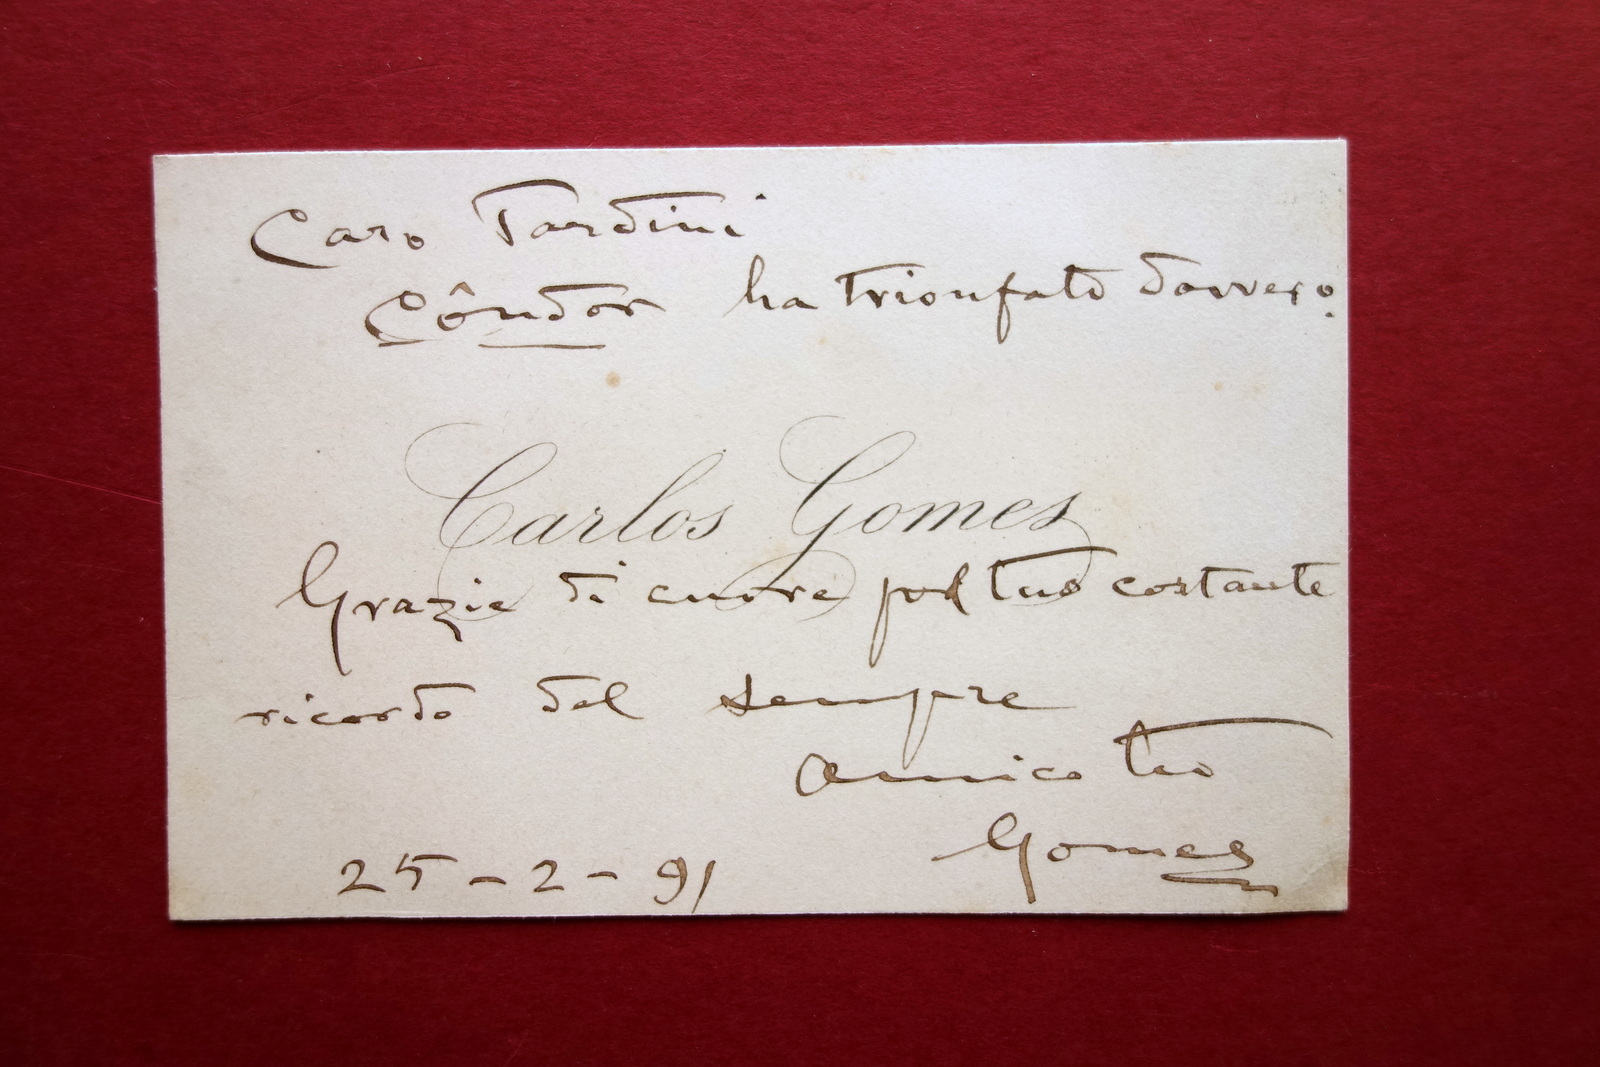 Caro Tardini
Côndor ha trionfato davvero.
Carlos Gomes
Grazie di cuore pel tuo costante
ricordo del sempre
amico tuo
Gomes
25-2-91